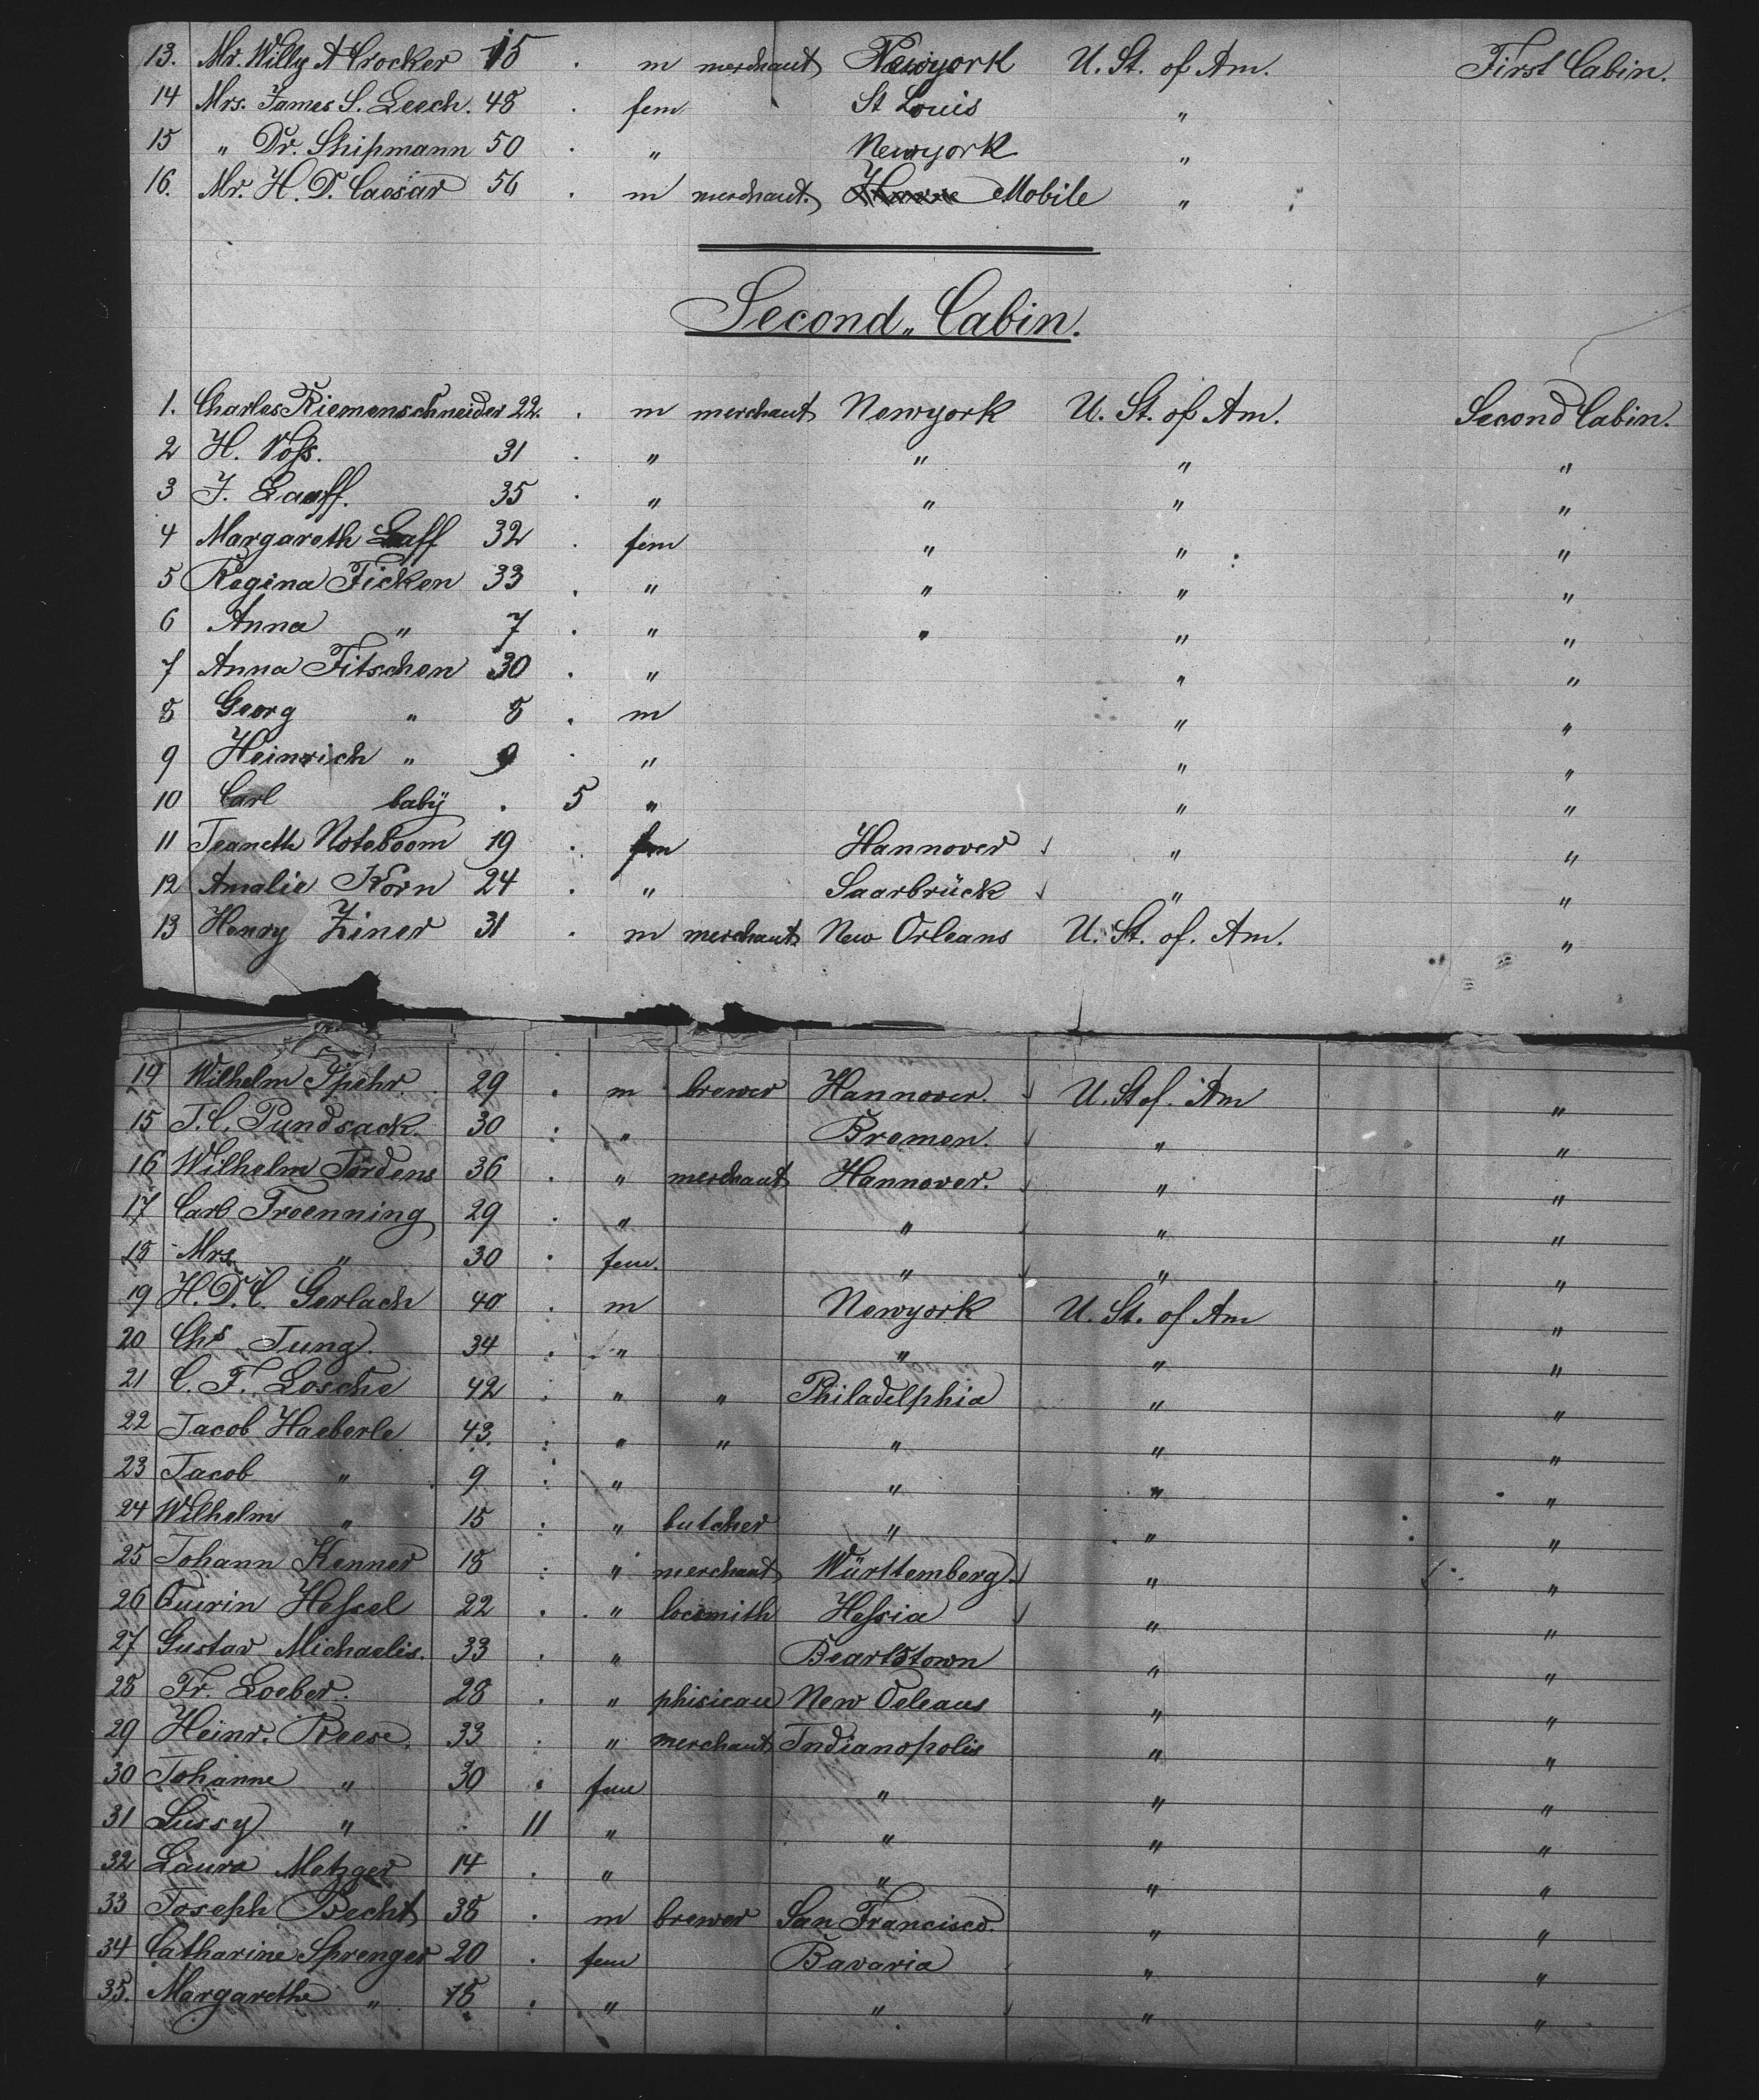 13. Mr. Willy A Crocker 15 . m merchant Newyork U. St. of Am. First Cabin.
14 Mrs. James S. Leech. 48 . fem St Louis "
15 " Dr. Shipmann 50 . " Newyork "
16. Mr. H. D. Caesar 56 . m merchant. Mobile "
Second Cabin.
1. Charles Riemenschneider 22. . m merchant Newyork U. St. of Am. Second Cabin.
2 H. Voſs. 31 . " " " "
3 J. Laaff. 35 . " " " "
4 Margareth Laff 32 . fem " " "
5 Regina Ficken 33 . " " " "
6 Anna " 7 . " " " "
7 Anna Fitschen 30 . " " "
8 Georg " 8 . m " "
9 Heinrich " 9 . " " "
10 Carl baby . 5 " " "
11 Jeanette Noteboom 19 . fem Hannover " "
12 Amalie Korn 24 . " Saarbrück " "
13 Henry Ziner 31 . m merchant New Orleans U. St. of. Am. "
14 Wilhelm Spehr. 29 . m brewer Hannover. U. St of. Am "
15 J. C. Pundsack. 30 . " Bremen. " "
16 Wilhelm Jördens 36 . " merchant Hannover. " "
17 Carl Troenning 29 . " " " "
18 Mrs. " 30 . fem. " " "
19 H. D. C. Gerlach 40 . m Newyork U. St. of Am "
20 Chs Jung. 34 . " " " "
21 C. F. Losche 42 . " " Philadelphia " "
22 Jacob Haeberle 43. . " " " " "
23 Jacob " 9 . " " " "
24 Wilhelm " 15 . " butcher " " "
25 Johann Kenner 18 . " merchant Württemberg. " "
26 Quirin Heſsel 22 . " locsmith Heſsia " "
27 Gustav Michaelis. 33 . " Beartstown " "
28 Fr. Loeber. 28 . " phisican New Orleans " "
29 Heinr. Reese. 33 . " merchant Indianopolis " "
30 Johanne " 30 . fem " " "
31 Lussy " . 11 " " " "
32 Laura Metzger 14 . " " " "
33 Joseph Becht 38 . m brewer San Francisco. " "
34 Catharine Sprenger 20 . fem Bavaria " "
35. Margarethe " 18 . " " " "